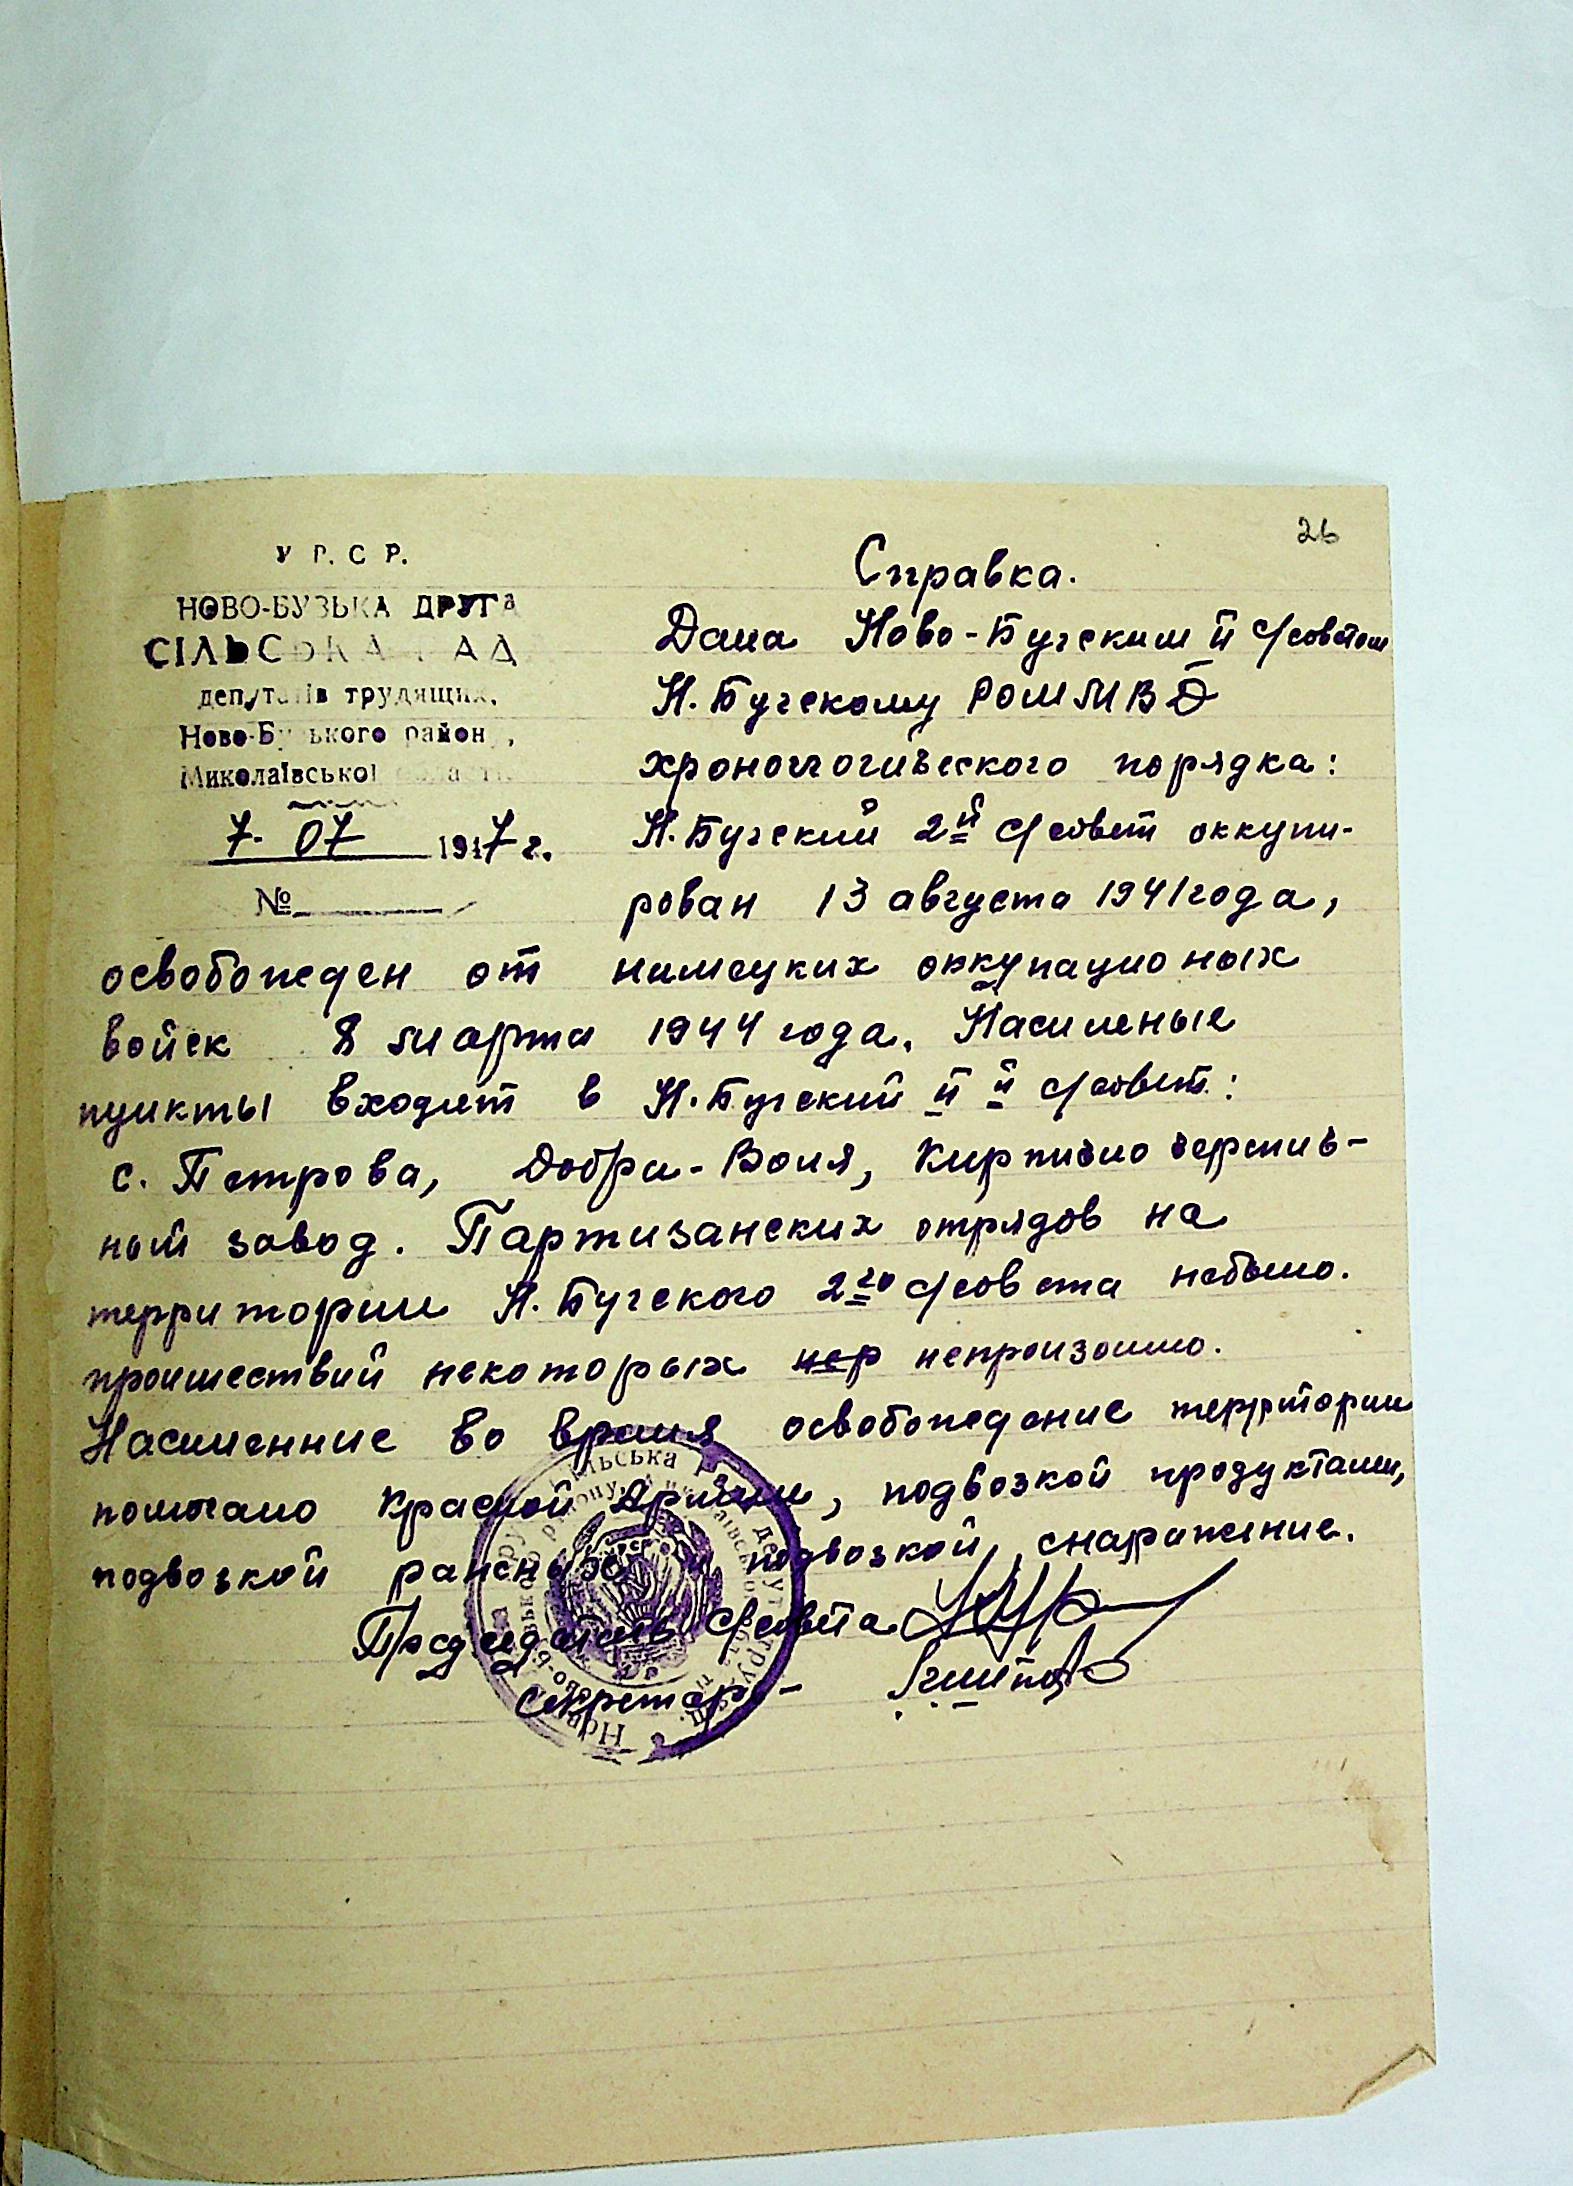 26
У Р. С Р.
НОВО-БУЗЬКА ДРУГа
СІЛЬСЬКА РАДА
депутатів трудящих,
Ново-Бузького району,
Миколаївської області
7. 07 1947 г.
№
Справка.
Дана Ново-Бугским ІІ с/советом
Н. Бугскому РОМ МВД
хронологического порядка:
Н. Бугский 2й с/совет оккупи-
рован 13 августа 1941 года,
освобожден от немецких оккупационых
войск 8 марта 1944 года. Населеные
пункты входит в Н. Бугский ІІ й с/совет:
с. Петрова, Добра-Воля, Кирпично черепич-
ный завод. Партизанских отрядов на
территории Н. Бугского 2го с/совета небыло.
проишествий некоторых нер непроизошло.
Населенние во время освобождение территории
помогало Красной Армии, подвозкой продуктами,
подвозкой раненых и подвозкой снаряжение.
Председатель с/совета
секретарь-